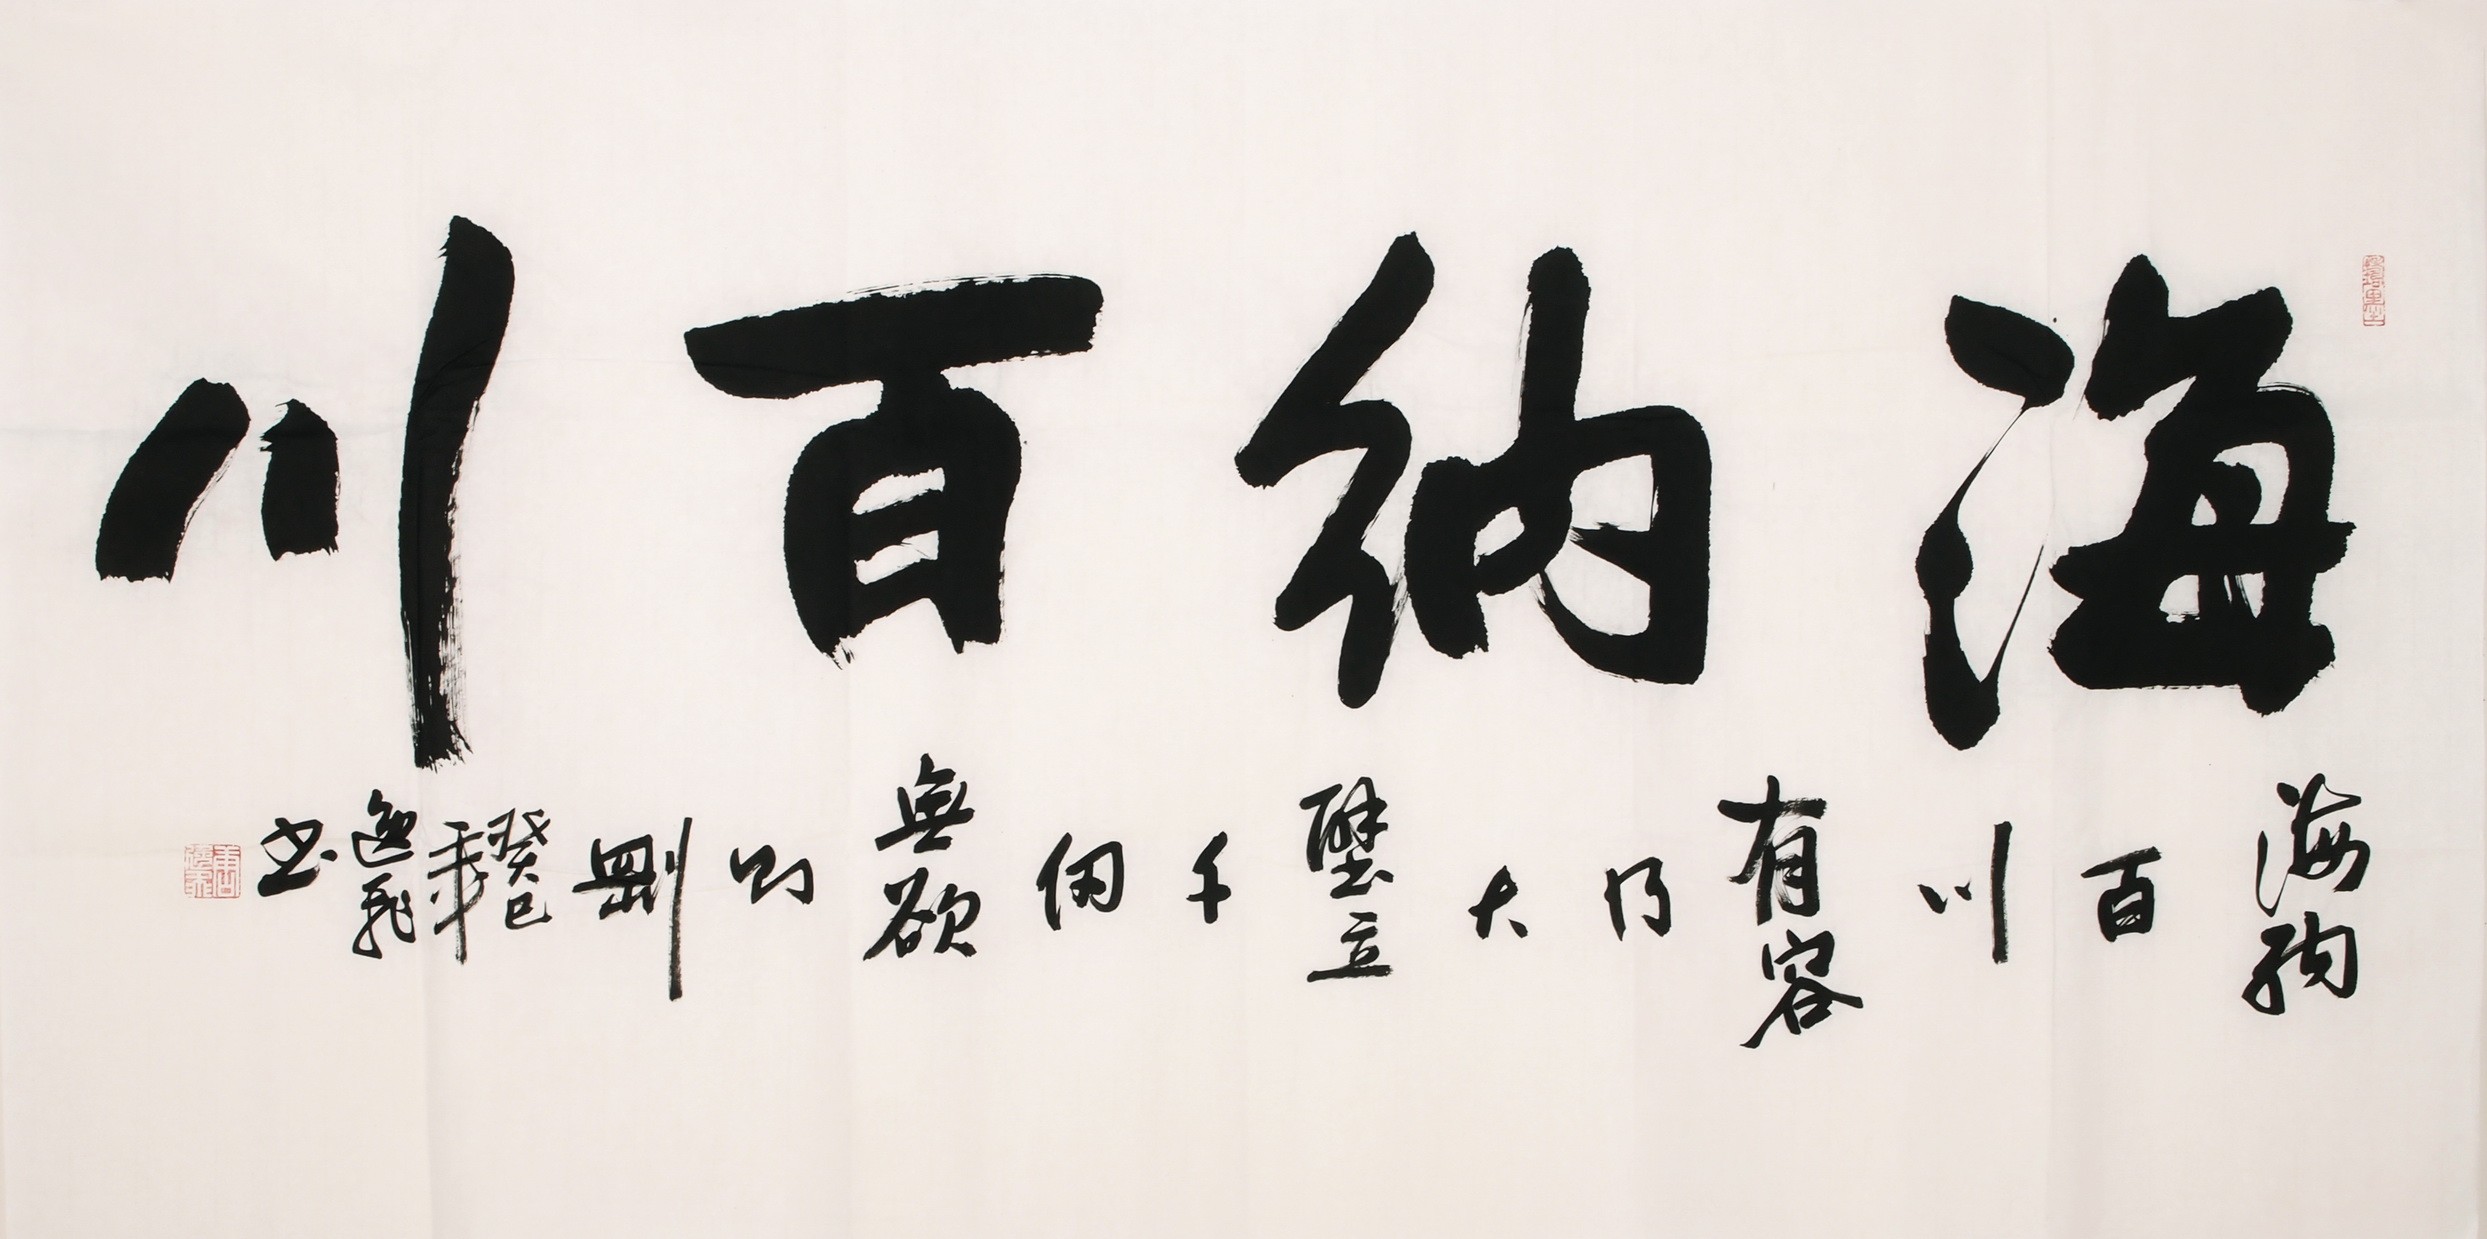 海納百川
海納百川有容乃大壁立千仞無欲則剛
癸巳年
逸飛書